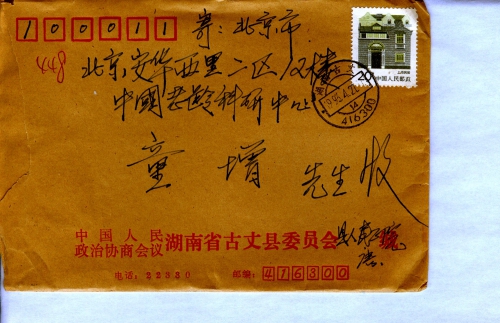 100011
寄：北京市
448
北京安华西里二区12楼
中國老龄科研中心
童 增 先生 收
20
中国人民邮政
1995.4.2
416300
中国人民
政治协商会议湖南省古丈县委员会
电话：22380 邮编：416300